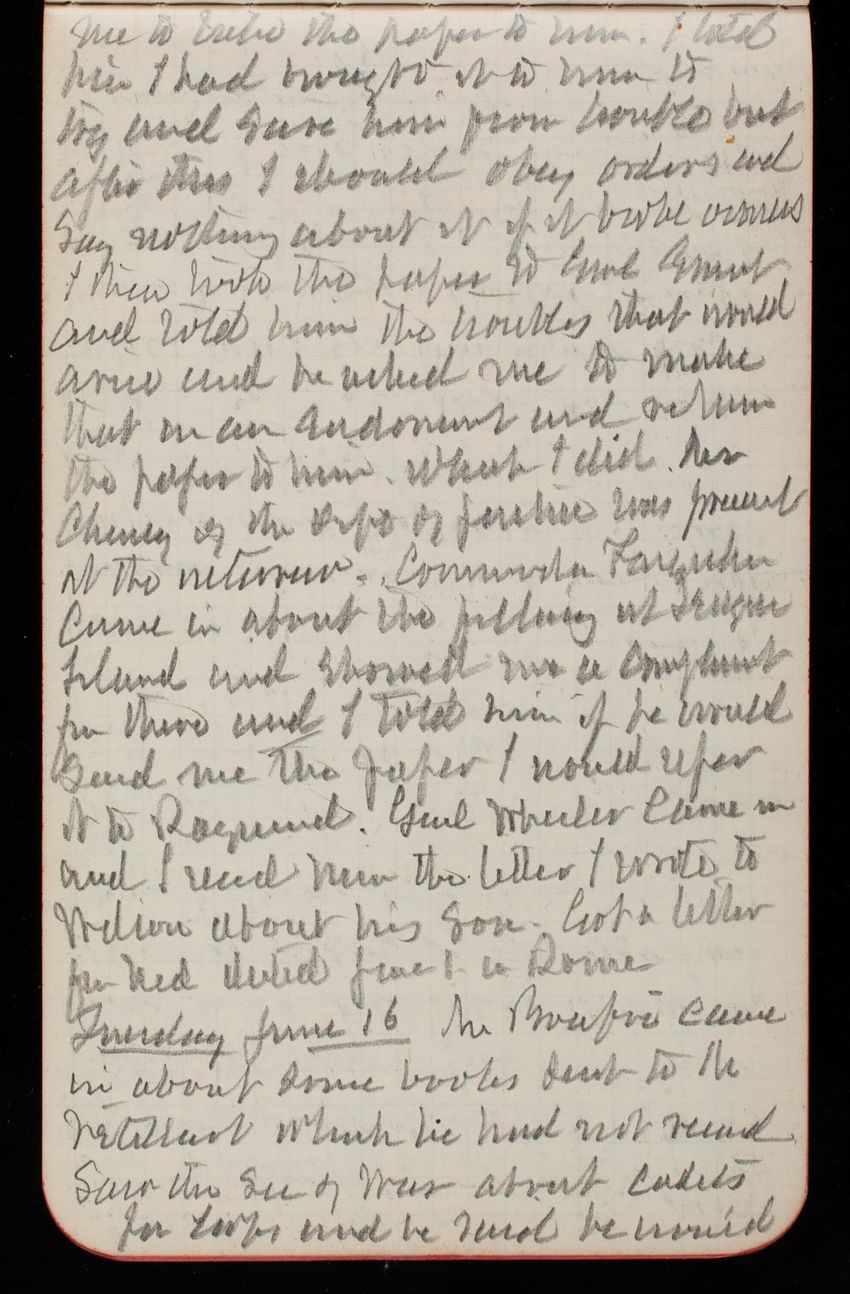 me to the paper to him. I told
him I had brought it to him to
try and save him from trouble but
after this I should obey orders and
say nothing about it if it broke
I then took the paper to Genl Grant
and told him the troubles that would
arise and he asked me to make
that in an endorsement and return
the paper to him. which I did. Mr
Cheney of the Dept of Justice was present
at the interview. Commander Farquhar
came in about the filling at League
Island and showed me a complaint
fm there and I told him if he would
send me the paper I would refer
it to Raymond. Genl Wheeler came in
and I read him the letter I wrote to
Wilson about his son. Got a letter
fm Ned dated June 1 in Rome
Tuesday June 16 Mr came
in about some books sent to Mr
which he had not recd
Saw the Sec of War about cadets
for and he said he would